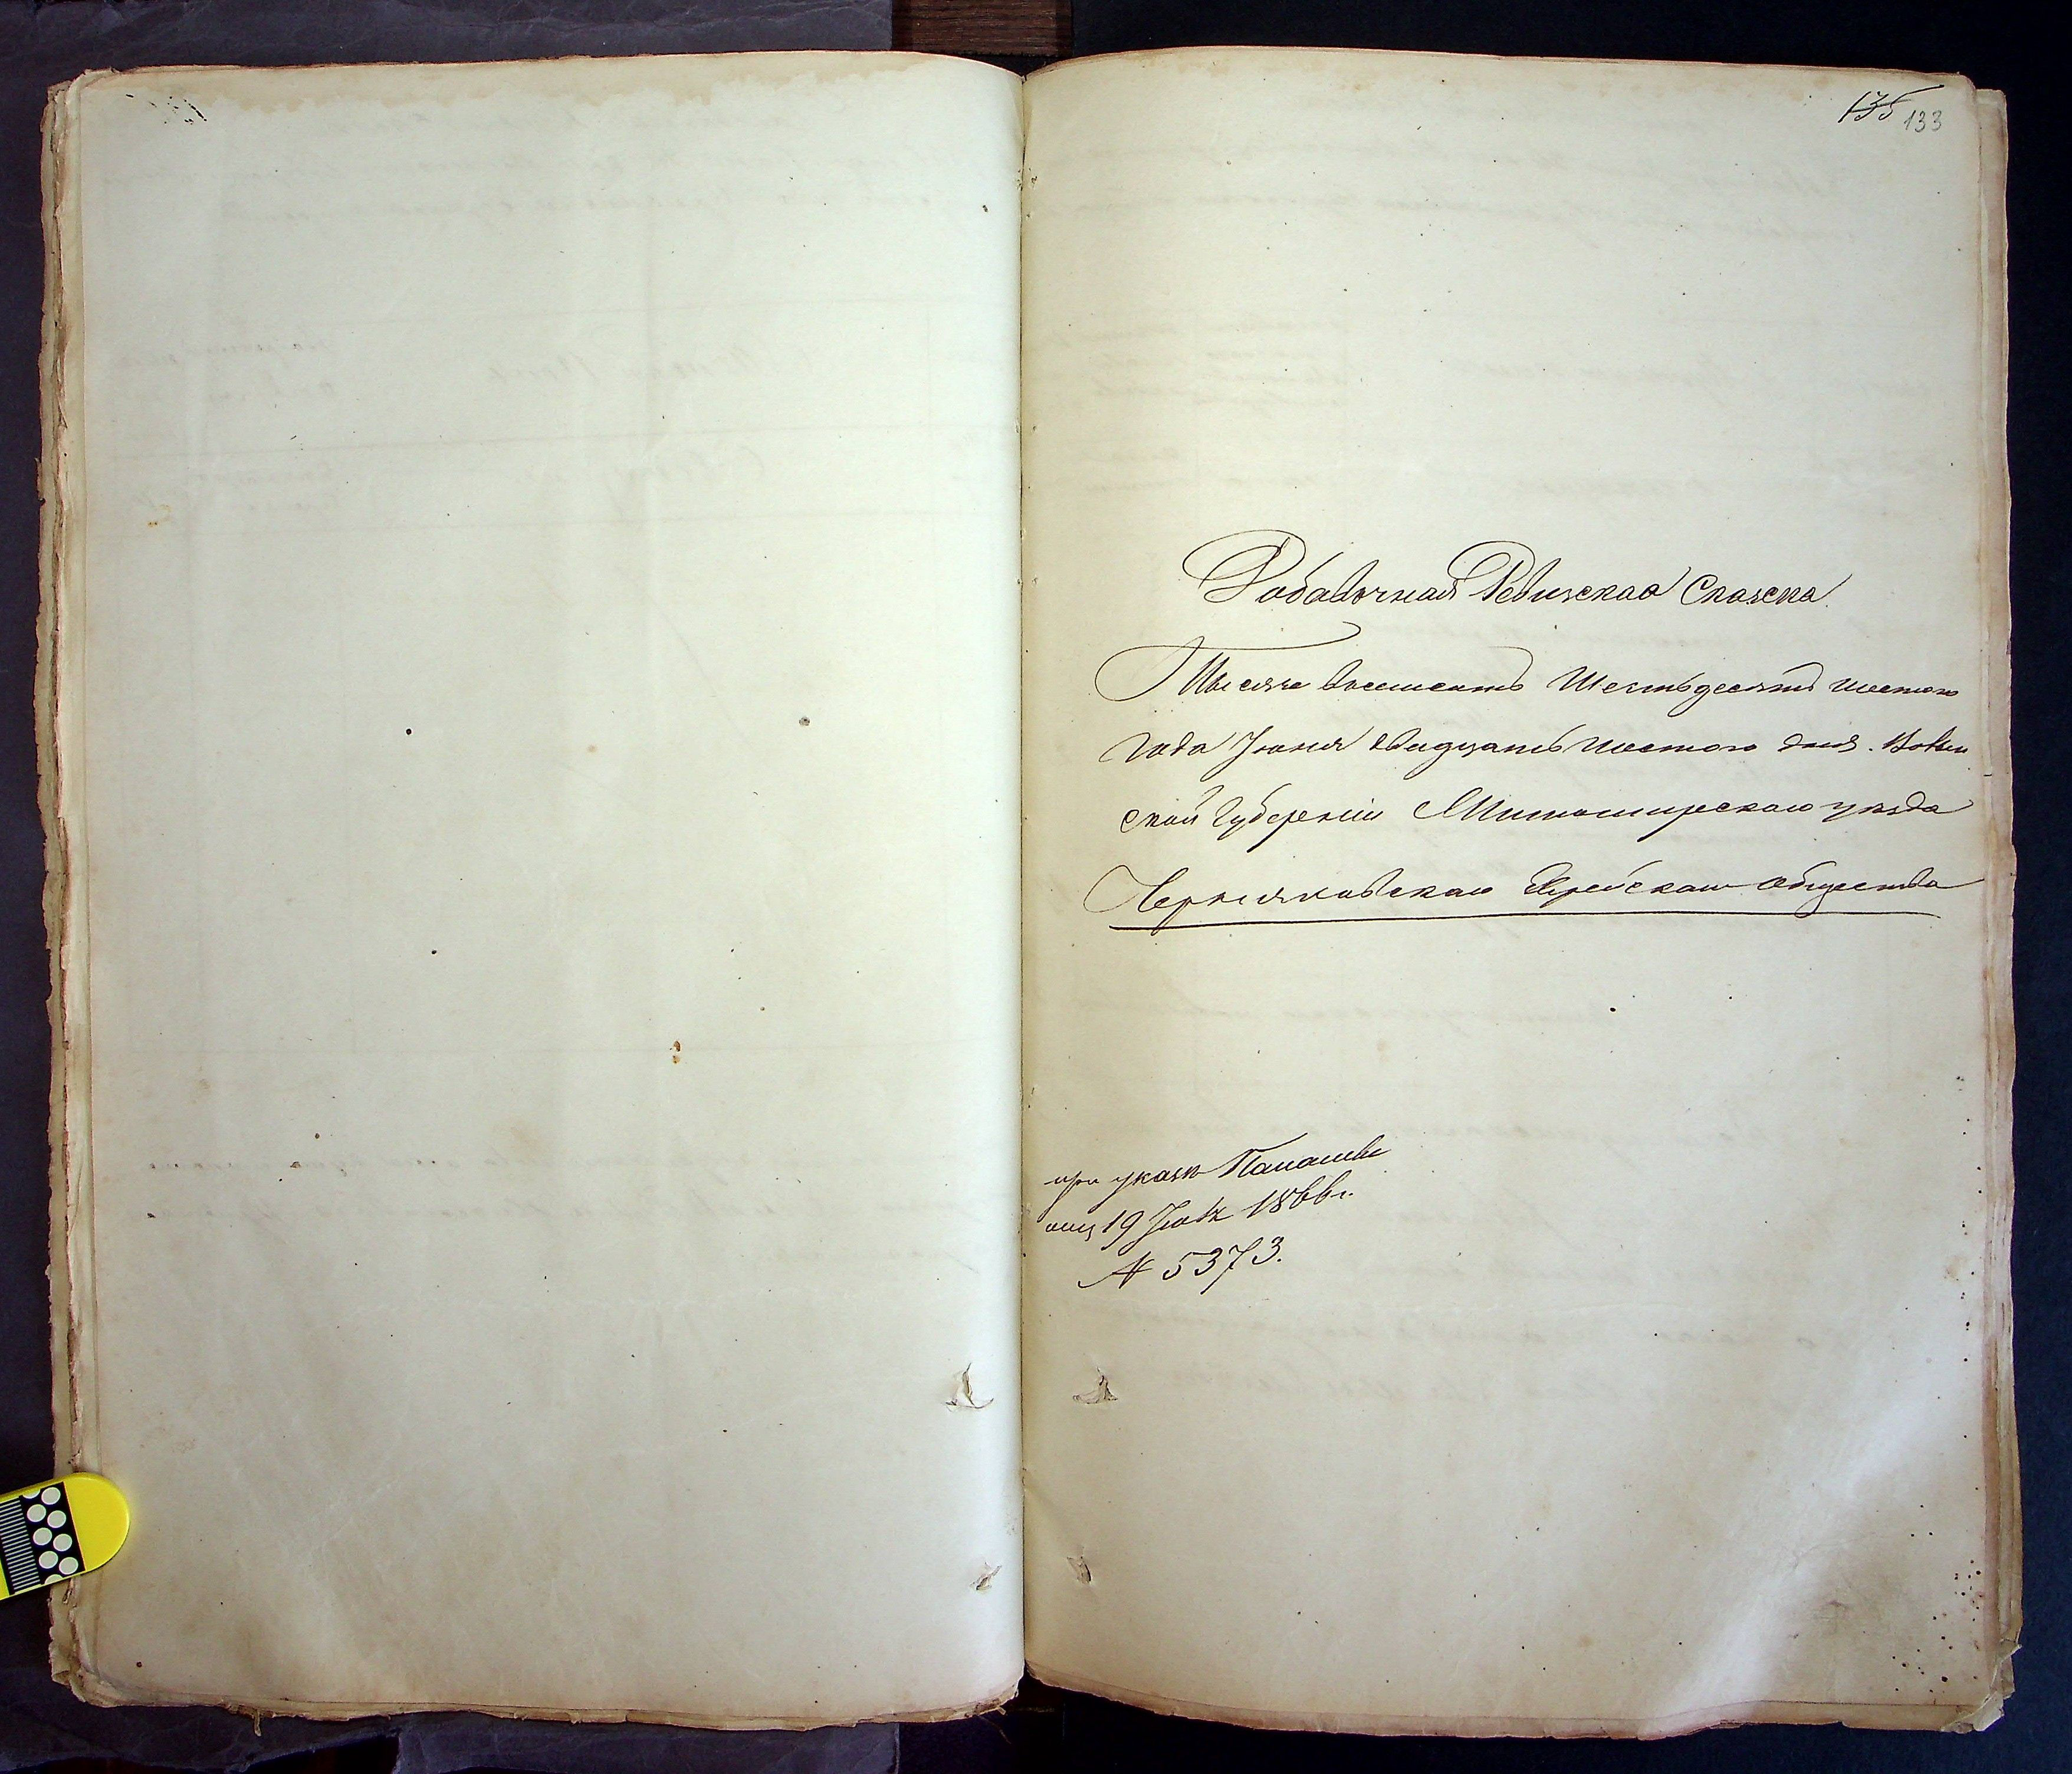 135 133
Добавочная Ревизская Сказка
Тысяча восемьсотъ Шестьдесятъ шестого
года Іюня двадцать шестого дня. Волын
ской Губерніи Житомирскаго уезда
Черняховскаго Еврейскаго общества
при указе Палаты
отъ 19 1866 г.
№ 5373.